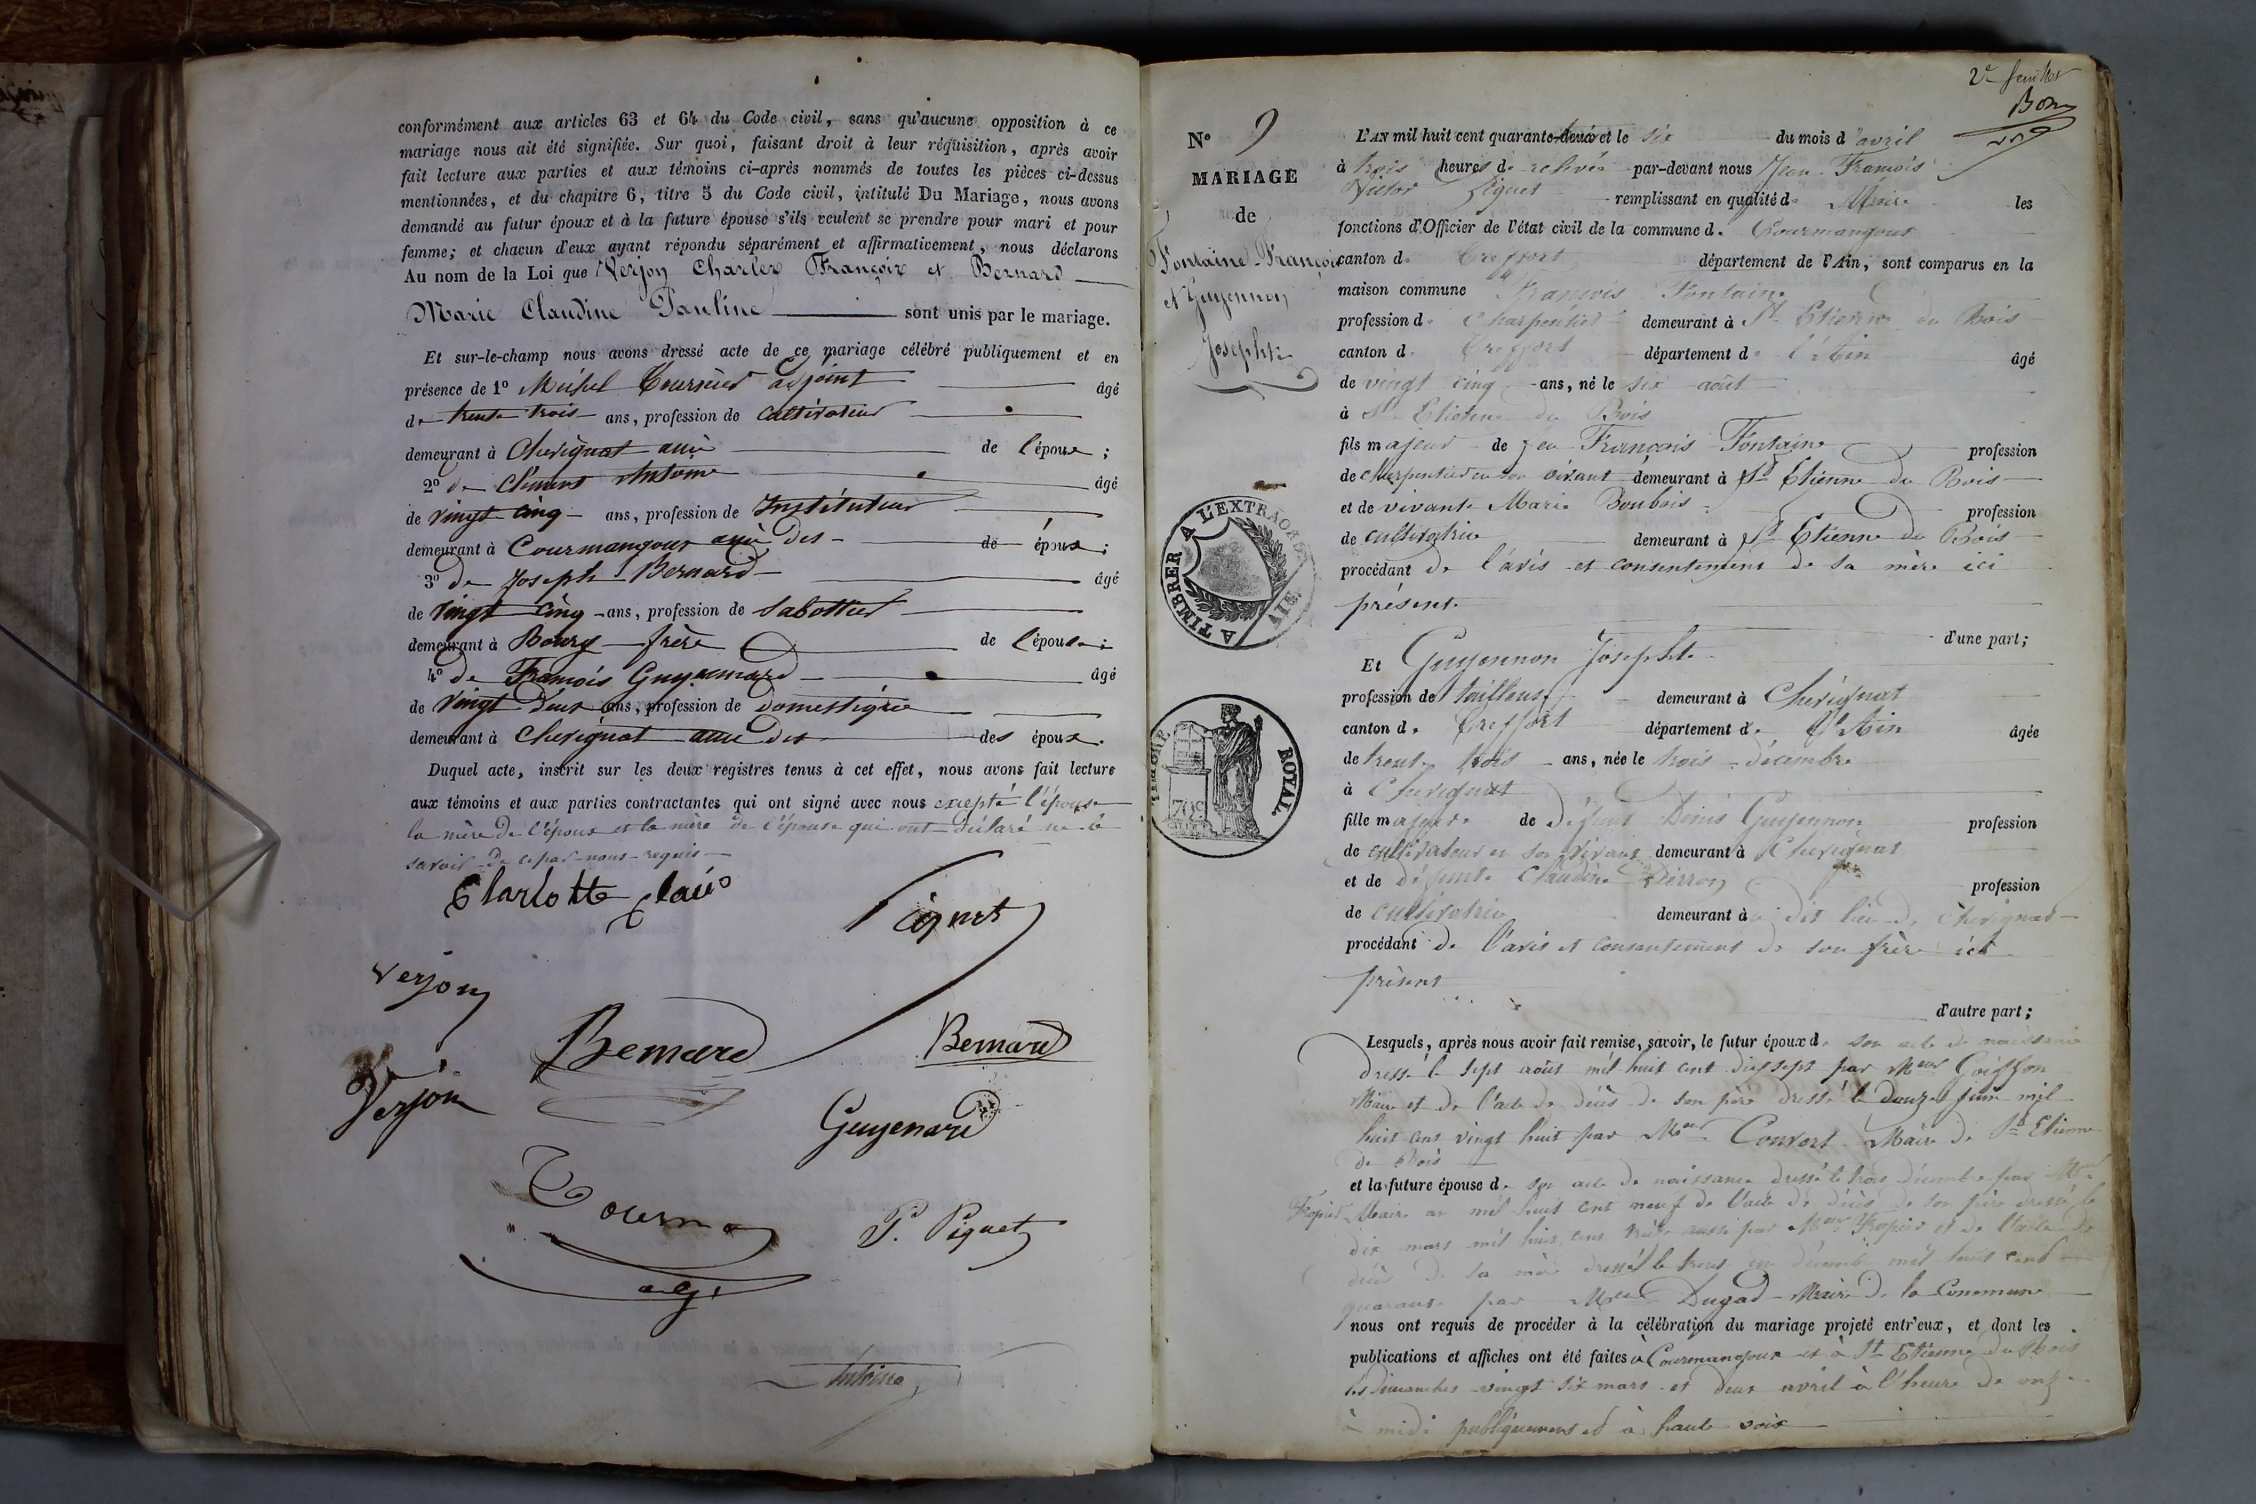 conformément aux articles 63 et 64 du Code civil, sans qu'aucune opposition à ce
mariage nous ait été signifiée. Sur quoi, faisant droit à leur réquisition, après avoir
fait lecture aux parties et aux témoins ci-après nommés de toutes les pièces ci-dessus
mentionnées, et du chapitre 6, titre 5 du Code civil, intitulé Du Mariage, nous avons
demandé au futur époux et à la future épouse s'ils veulent se prendre pour mari et pour
femme; et chacun d'eux ayant répondu séparément et affirmativement, nous déclarons
Au nom de la Loi que Verjon Charles François et Bernard
Marie Claudine Pauline sont unis par le mariage.
Et sur-le-champ nous avons dressé acte de ce mariage célébré publiquement et en
présence de 1º Michel Tournier adjoint âgé
de trente trois ans, profession de cultivateur
demeurant à Chevignat ami de l'époux;
2º de Clément Antoine âgé
de vingt cinq ans, profession de Instituteur
demeurant à Courmangoux ami des de époux;
3º de Joseph Bernard âgé
de vingt cinq ans, profession de sabottier
demeurant à Bourg frère de l'épouse;
4º de François Guyenard âgé
de vingt deux ans, profession de domestique
demeurant à Chevignat ami des des époux.
Duquel acte, inscrit sur les deux registres tenus à cet effet, nous avons fait lecture
aux témoins et aux parties contractantes qui ont signé avec nous excepté l'épouse
la mère de l'époux et la mère de l'épouse qui ont déclaré ne le
savoir de ce par nous requis
Piquet
Verjon
Bernard
Bernard
Verjon
Guyenard
P. Piquet
adj.
Antoine
2e feuillet
Nº 9
MARIAGE
de
Fontaine François
et Guyennon
Josephte
A TIMBRER A L'EXTRAORD
TIMBRE ROYAL
L'AN mil huit cent quarante-deux et le six du mois d'avril
à trois heures de relevée par-devant nous Jean François
Victor Piquet remplissant en qualité de Maire les
fonctions d'Officier de l'état civil de la commune de Courmangoux
canton de Treffort département de l'Ain, sont comparus en la
maison commune François Fontaine
profession de charpentier demeurant à St Etienne du Bois
canton de Treffort département de l'Ain âgé
de vingt cinq ans, né le six août
à St Etienne du Bois
fils majeur de feu François Fontaine profession
de charpentier en son vivant demeurant à St Etienne du Bois
et de vivante Marie Bonbois profession
de cultivatrice demeurant à St Etienne du Bois
procédant de l'avis et consentement de sa mère ici
présente
d'une part;
Et Guyennon Josephte
profession de tailleuse demeurant à Chevignat
canton de Treffort département de l'Ain âgée
de trente trois ans, née le trois décembre
à Chevignat
fille majeure de défunt Denis Guyennon profession
de cultivateur en son vivant demeurant à Chevignat
et de défunte Claudine Perron profession
de cultivatrice demeurant à dit lieu de Chevignat
procédant de l'avis et consentement de son frère ici
présent
d'autre part;
Lesquels, après nous avoir fait remise, savoir, le futur époux de son acte de naissance
dressé le sept août mil huit cent dix sept par Goiffon
Maire et de l'acte de décès de son père dressé le douze juin mil
huit cent vingt huit par Convert Maire de St Etienne
du Bois
et la future épouse de son acte de naissance dressé le trois décembre par
Maire an mil huit cent neuf de l'acte de décès de son père dressé le
dix mars mil huit cent aussi par et de l'acte de
décès de sa mère dressé le décembre mil huit cent
quarante par Dugad Maire de la Commune
nous ont requis de procéder à la célébration du mariage projeté entr'eux, et dont les
publications et affiches ont été faites à Courmangoux et à St Etienne du Bois
les dimanches vingt six mars et deux avril à l'heure de onze
à midi publiquement et à haute voix